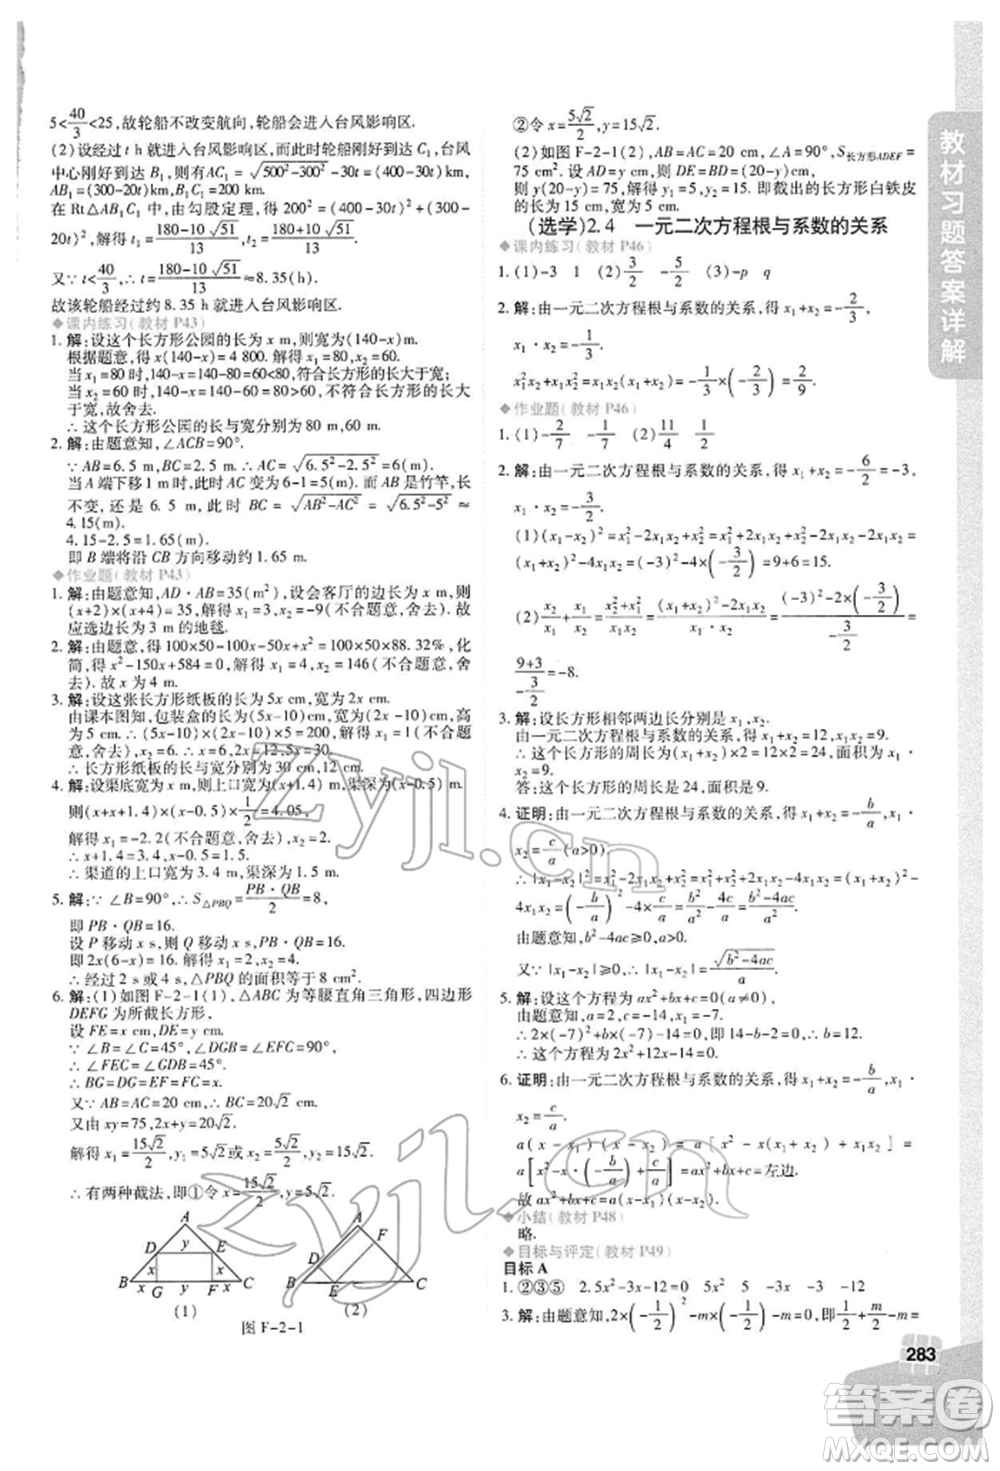 5<40/3<25,故轮船不改变航向,轮船会进入台风影响区.
(2)设经过 t h 就进入台风影响区,而此时轮船刚好到达 C₁,台风
中心刚好到达 B₁,则有AC₁=√(500²−300²)=400(km),
AB₁=(300+500−20t)−400=(400−20t)km.
在 Rt△AB₁C₁ 中,由勾股定理,得 200²=(400−30t)²+(400−
20t)²,解得 t₁=(180−10√51)/13,t₂=(180+10√51)/13.
又∵t<40/3,∴t=(180−10√51)/13≈8.35(h).
故该轮船经过约 8.35 h 就进入台风影响区.
◆课内练习(教材 P43)
1. 解:设这个长方形公园的长为 x m,则宽为(140−x)m.
根据题意,得 x(140−x)=4 800,解得 x₁=60,x₂=80.
当 x₁=80时,140−x₁=140−80=60<80;
当 x₂=60时,140−x₂=140−60=80>60,不合题意长大
于宽,故舍去.
∴这个长方形公园的长与宽分别为 80 m,60 m.
2. 解:由题意知,∠ACB=90°.
∵AB=6.5 m,BC=2.5 m,∴AC=√(6.5²−2.5²)=6(m).
当 A 端下移 1 m时,此时AC变为 6−1=5(m),但是竹竿长
不变,还是 6.5 m,此时 BC=√(AB²−AC²)=√(6.5²−5²)≈
4.15(m).
4.15−2.5=1.65(m).
即 B 端将沿 CB 方向移动约1.65 m.
◆作业题(教材 P43)
1. 解:由题意知,AD·AB=35(m²),设会客厅的边长为 x m,则
(x+2)×(x+4)=35,解得 x₁=3,x₂=−9(不合题意,舍去).故
应选边长为3 m的地毯.
2. 解:由题意,得 100×50−100x−50x+x²=100×50×88.32%,化
简,得 x²−150x+584=0,解得 x₁=4,x₂=146(不合题意,舍
去).故 x=4.
3. 解:设这张长方形纸板的长为5x cm,宽为2x cm.
由课本图知,包装盒的长为(5x−10)cm,宽为(2x−10)cm,高
为5 cm.∴(5x−10)×(2x−10)×5=200.解得 x₁=1(不合题
意,舍去),x₂=6.∴5x=30,2x=12.
∴长方形纸板的长与宽分别为 30 cm,12 cm.
4. 解:设渠底宽为 x m,则上口宽为(x+1.4) m,渠深为(x−0.5) m.
则(x+x+1.4)×(x−0.5)×1/2=4.05,
解得 x₁=−2.2(不合题意,舍去),x₂=2.
∴x+1.4=3.4,x−0.5=1.5.
∴渠道的上口宽为 3.4 m,渠深为1.5 m.
5. 解:∵∠B=90°,∴S△PBQ=PB·QB/2=8,
即 PB·QB=16.
设 P 移动 x s,则 Q 移动 x s,
即 2x(6−x)=16,解得 x₁=2,x₂=4.
∴经过 2 s 或 4 s,△PBQ 的面积等于 8 cm².
6. 解:(1)如图 F-2-1(1),△ABC为等腰直角三角形,四边形
DEFG 为所截长方形,
设 FE=x cm,DE=y cm.
∵∠B=∠C=45°,∠DGB=∠EFC=90°,
∴∠FEC=∠GDB=45°,
∴BG=DG=FE=FC=x cm.
又∵AB=AC=20 cm,∴BC=20√2 cm.
又由 xy=75,2x+y=20√2.
解得 x₁=15√2/2,y₁=5√2 或 x₂=5√2/2,y₂=15√2.
∴有两种截法,即①令 x=15√2/2,y=5√2,
A
D y E
x x
B G y F C
(1)
A
D F
B E C
(2)
图 F-2-1
②令 x=5√2/2,y=15√2.
(2)如图 F-2-1(2),AB=AC=20 cm,∠A=90°,S长方形ADEF=
75 cm².设 AD=y cm,则 DE=BD=(20−y)cm.
则 y(20−y)=75,解得 y₁=5,y₂=15.即截出的长方形白铁皮
的长为 15 cm,宽为 5 cm.
(选学)2.4 一元二次方程根与系数的关系
◆课内练习(教材 P46)
1. (1)−3 1 (2)−4/3 −5/3 (3)−p q
2. 解:由一元二次方程根与系数的关系,得 x₁+x₂=−2/3,
x₁·x₂=−1/3.
x₁²x₂+x₁x₂²=x₁x₂(x₁+x₂)=−1/3×(−2/3)=2/9.
◆作业题(教材 P46)
1. (1)−2/7 −1/7 (2)11/4 1/2
2. 解:由一元二次方程根与系数的关系,得 x₁+x₂=−6/2=−3,
x₁·x₂=−3/2.
(1)(x₁−x₂)²=x₁²−2x₁x₂+x₂²=x₁²+2x₁x₂+x₂²−4x₁x₂=
(x₁+x₂)²−4x₁x₂=(−3)²−4×(−3/2)=9+6=15.
(2)x₂/x₁+x₁/x₂=(x₁²+x₂²)/(x₁x₂)=((x₁+x₂)²−2x₁x₂)/(x₁x₂)=((−3)²−2×(−3/2))/(−3/2)=
(9+3)/(−3/2)=−8.
3. 解:设长方形相邻两边长分别是 x₁,x₂.
由一元二次方程根与系数的关系,得 x₁+x₂=12,x₁·x₂=9.
∴这个长方形的周长为(x₁+x₂)×2=12×2=24,面积为 x₁·
x₂=9.
答:这个长方形的周长为24,面积是9.
4. 证明:由一元二次方程根与系数的关系,得 x₁+x₂=−b/a,x₁·
x₂=c/a(a>0).
∴|x₁−x₂|²=x₁²−2x₁x₂+x₂²=x₁²+x₂²+2x₁x₂−4x₁x₂=(x₁+x₂)²−
4x₁x₂=(−b/a)²−4×c/a=b²/a²−4c/a=(b²−4ac)/a².
由题意知,b²−4ac≥0,a>0.
又∵|x₁−x₂|≥0,∴|x₁−x₂|=√(b²−4ac)/a.
5. 解:设这个方程为 2x²+bx+a=0(a≠0),
由题意,得 a=2×(−7)=−14.
∴2×(−7)²+b×(−7)−14=0,即 14−b−2=0,∴b=12.
∴这个方程为 2x²+12x−14=0.
6. 证明:由一元二次方程根与系数的关系,得 x₁+x₂=−b/a,x₁·
x₂=c/a.
a(x−x₁)(x−x₂)=a[x²−(x₁+x₂)x+x₁x₂]=
a[x²−x·(−b/a)+c/a]=ax²+bx+c=左边.
故 ax²+bx+c=a(x−x₁)(x−x₂).
◆小结(教材 P48)
略.
◆目标与评定(教材 P49)
目标 A
1. ②③⑤ 2. 5x²−3x−12=0 5x² 5 −3x −12
3. 解:由题意知,2×(−1/2)²−(−1/2)−m=0,即1/2+m/2−m=
教材习题答案详解
283
zyjl.cn
zyjl.cn
答案圈
MXQE.COM